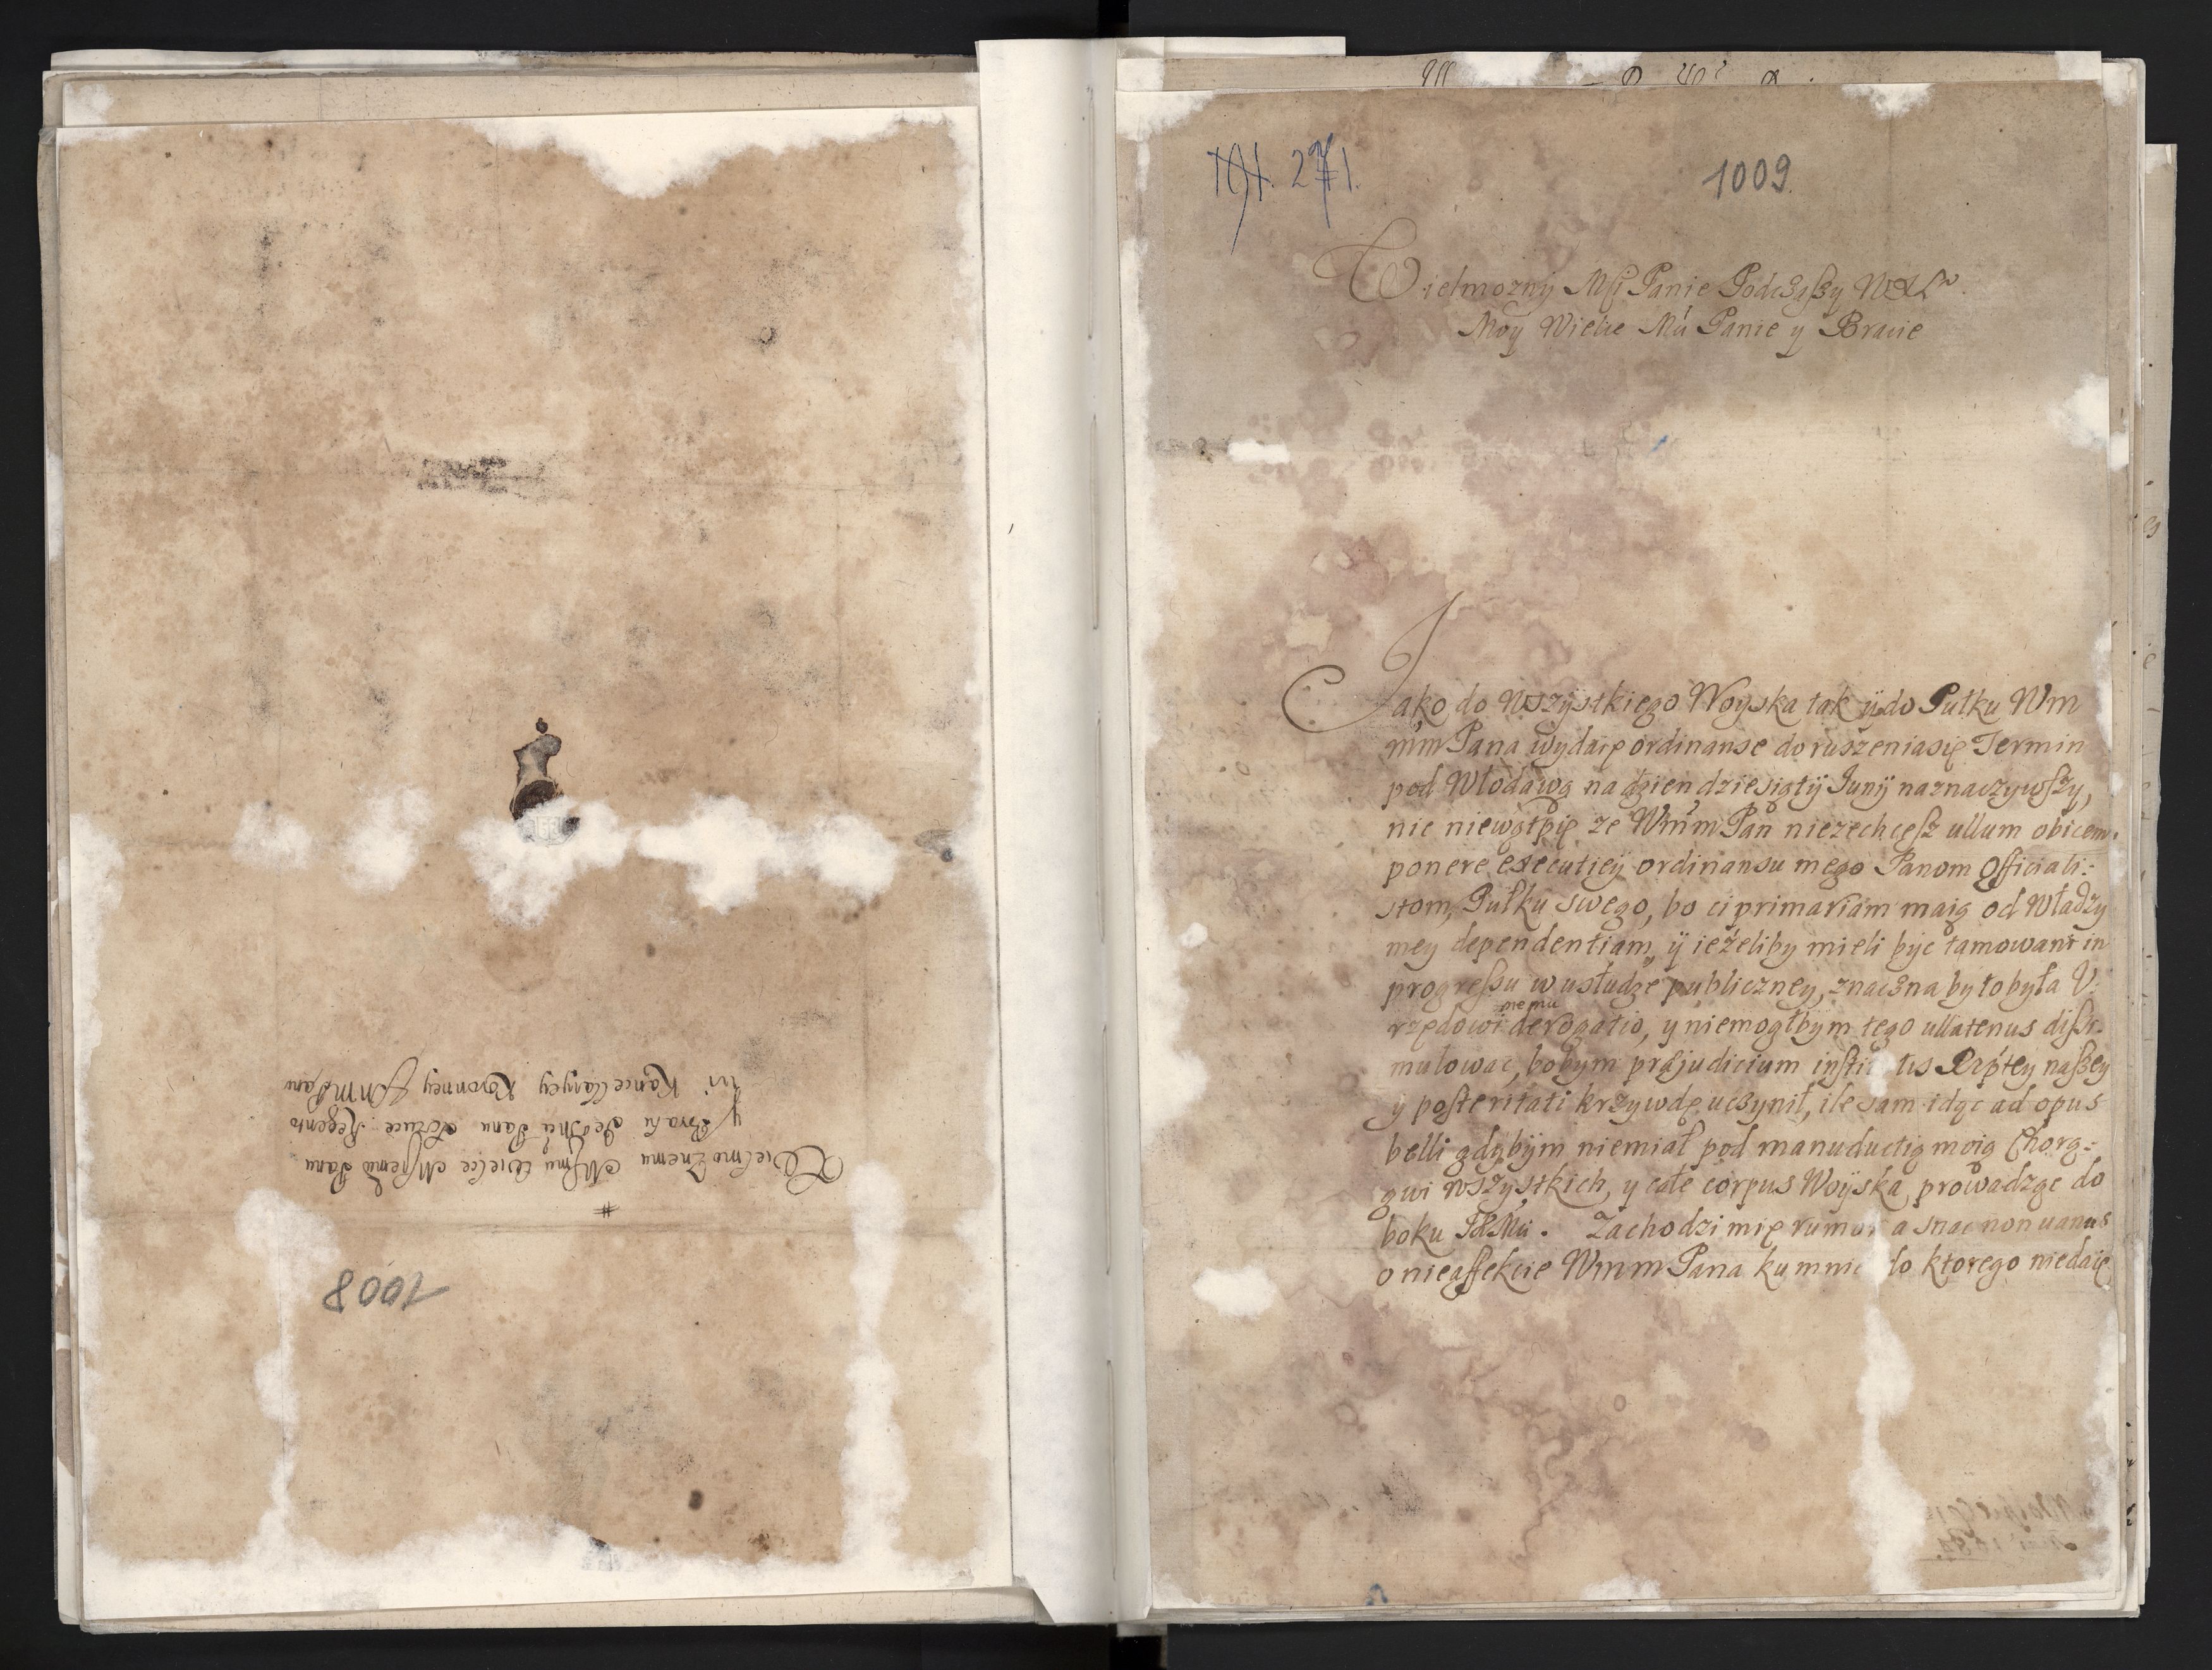 1008
#
Wielmożnemu Memu wielce Msciwemu Panu
y Bratu Jeo Mci Panu Regento
wi Kancellaryey Koronney
1009
Wielmozny Msci Panie Podczaszy WXL
Moy Wielce Mci Panie y Bracie
Jako do Wszystkiego Woyska tak ÿ do Pułku Wm
mm Pana wydaię ordinanse do ruszenia się Termin
pod Włodawą na dzien dziesiątÿ Junÿ naznaczywszy,
nic niewątpię ze Wmm Pan niezechcesz ullum obicem
ponere executiey ordinansu mego Panom Officiali:
stom, Pułku swego, bo ci primariam maią od Władzy
mey dependentiam, ÿ ieżeliby mieli być tamowani in
progressu w usłudze publiczney, znaczna by to była V
rzędowi memu derogatio, y niemogłbym tego ullatenus dissi-
mulowac, bobym præjudicium insti tis Rzptey naszey
y posteritati krzywdę uczynił, ile sam idąc ad opus
belli gdybym niemiał pod manuductią moią Chorą:
gwi wszystkich, y całe corpus Woyska, prowadząc do
boku JKMci. Zachodzi mię rumor a snac non uanus
o nieaffekcie Wmm Pana ku mnie do ktorego niedaię